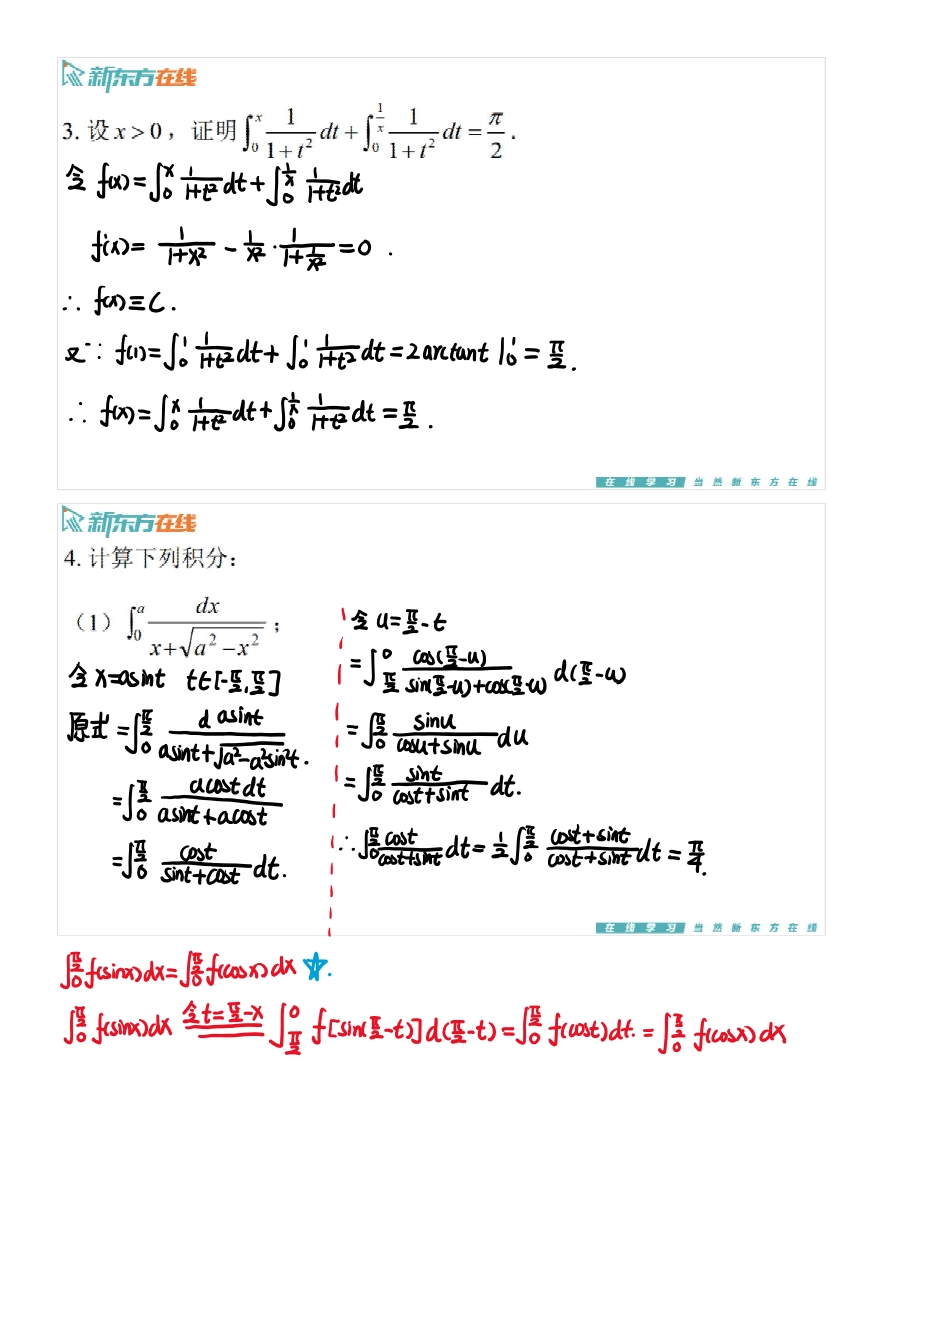 新东方在线
3. 设 x > 0，证明 ∫₀ˣ 1/(1+t²) dt + ∫₀^(1/x) 1/(1+t²) dt = π/2 .
令 f(x) = ∫₀ˣ 1/(1+t²) dt + ∫₀^(1/x) 1/(1+t²) dt
f'(x) = 1/(1+x²) - 1/x² · 1/(1+1/x²) = 0 .
∴ f(x) ≡ C .
又∵ f(1) = ∫₀¹ 1/(1+t²) dt + ∫₀¹ 1/(1+t²) dt = 2 arctan t |₀¹ = π/2 .
∴ f(x) = ∫₀ˣ 1/(1+t²) dt + ∫₀^(1/x) 1/(1+t²) dt = π/2 .
在线学习 当然新东方在线
新东方在线
4. 计算下列积分：
（1）∫₀ᵃ dx/(x+√(a²-x²)) ；
令 x = asint t∈[-π/2, π/2]
原式 = ∫₀^(π/2) d asint/(asint+√(a²-a²sin²t)) .
= ∫₀^(π/2) acost dt/(asint+acost)
= ∫₀^(π/2) cost/(sint+cost) dt .
令 u = π/2 - t
= ∫_(π/2)^0 cos(π/2-u)/(sin(π/2-u)+cos(π/2-u)) d(π/2-u)
= ∫₀^(π/2) sinu/(cosu+sinu) du
= ∫₀^(π/2) sint/(cost+sint) dt .
∴ ∫₀^(π/2) cost/(cost+sint) dt = 1/2 ∫₀^(π/2) (cost+sint)/(cost+sint) dt = π/4 .
在线学习 当然新东方在线
∫₀^(π/2) f(sinx)dx = ∫₀^(π/2) f(cosx)dx ☆ .
∫₀^(π/2) f(sinx)dx 令 t = π/2 - x ∫_(π/2)^0 f[sin(π/2-t)] d(π/2-t) = ∫₀^(π/2) f(cost)dt . = ∫₀^(π/2) f(cosx)dx